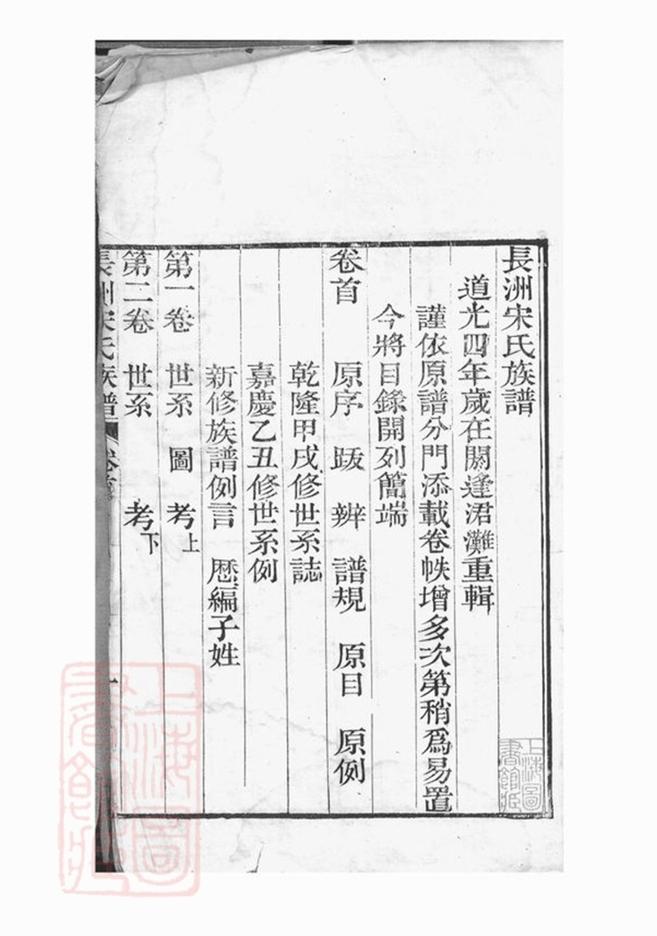 長洲宋氏族譜
道光四年歲在閼逢涒灘重輯
謹依原譜分門添載卷帙增多次第稍爲易置
今將目錄開列簡端
卷首 原序 跋 辨 譜規 原目 原例
乾隆甲戌修世系誌
嘉慶乙丑修世系例
新修族譜例言 歷編子姓
第一卷 世系 圖 考上
第二卷 世系 考下
長洲宋氏族譜 卷首 一
上海圖書館藏
上海圖書館藏